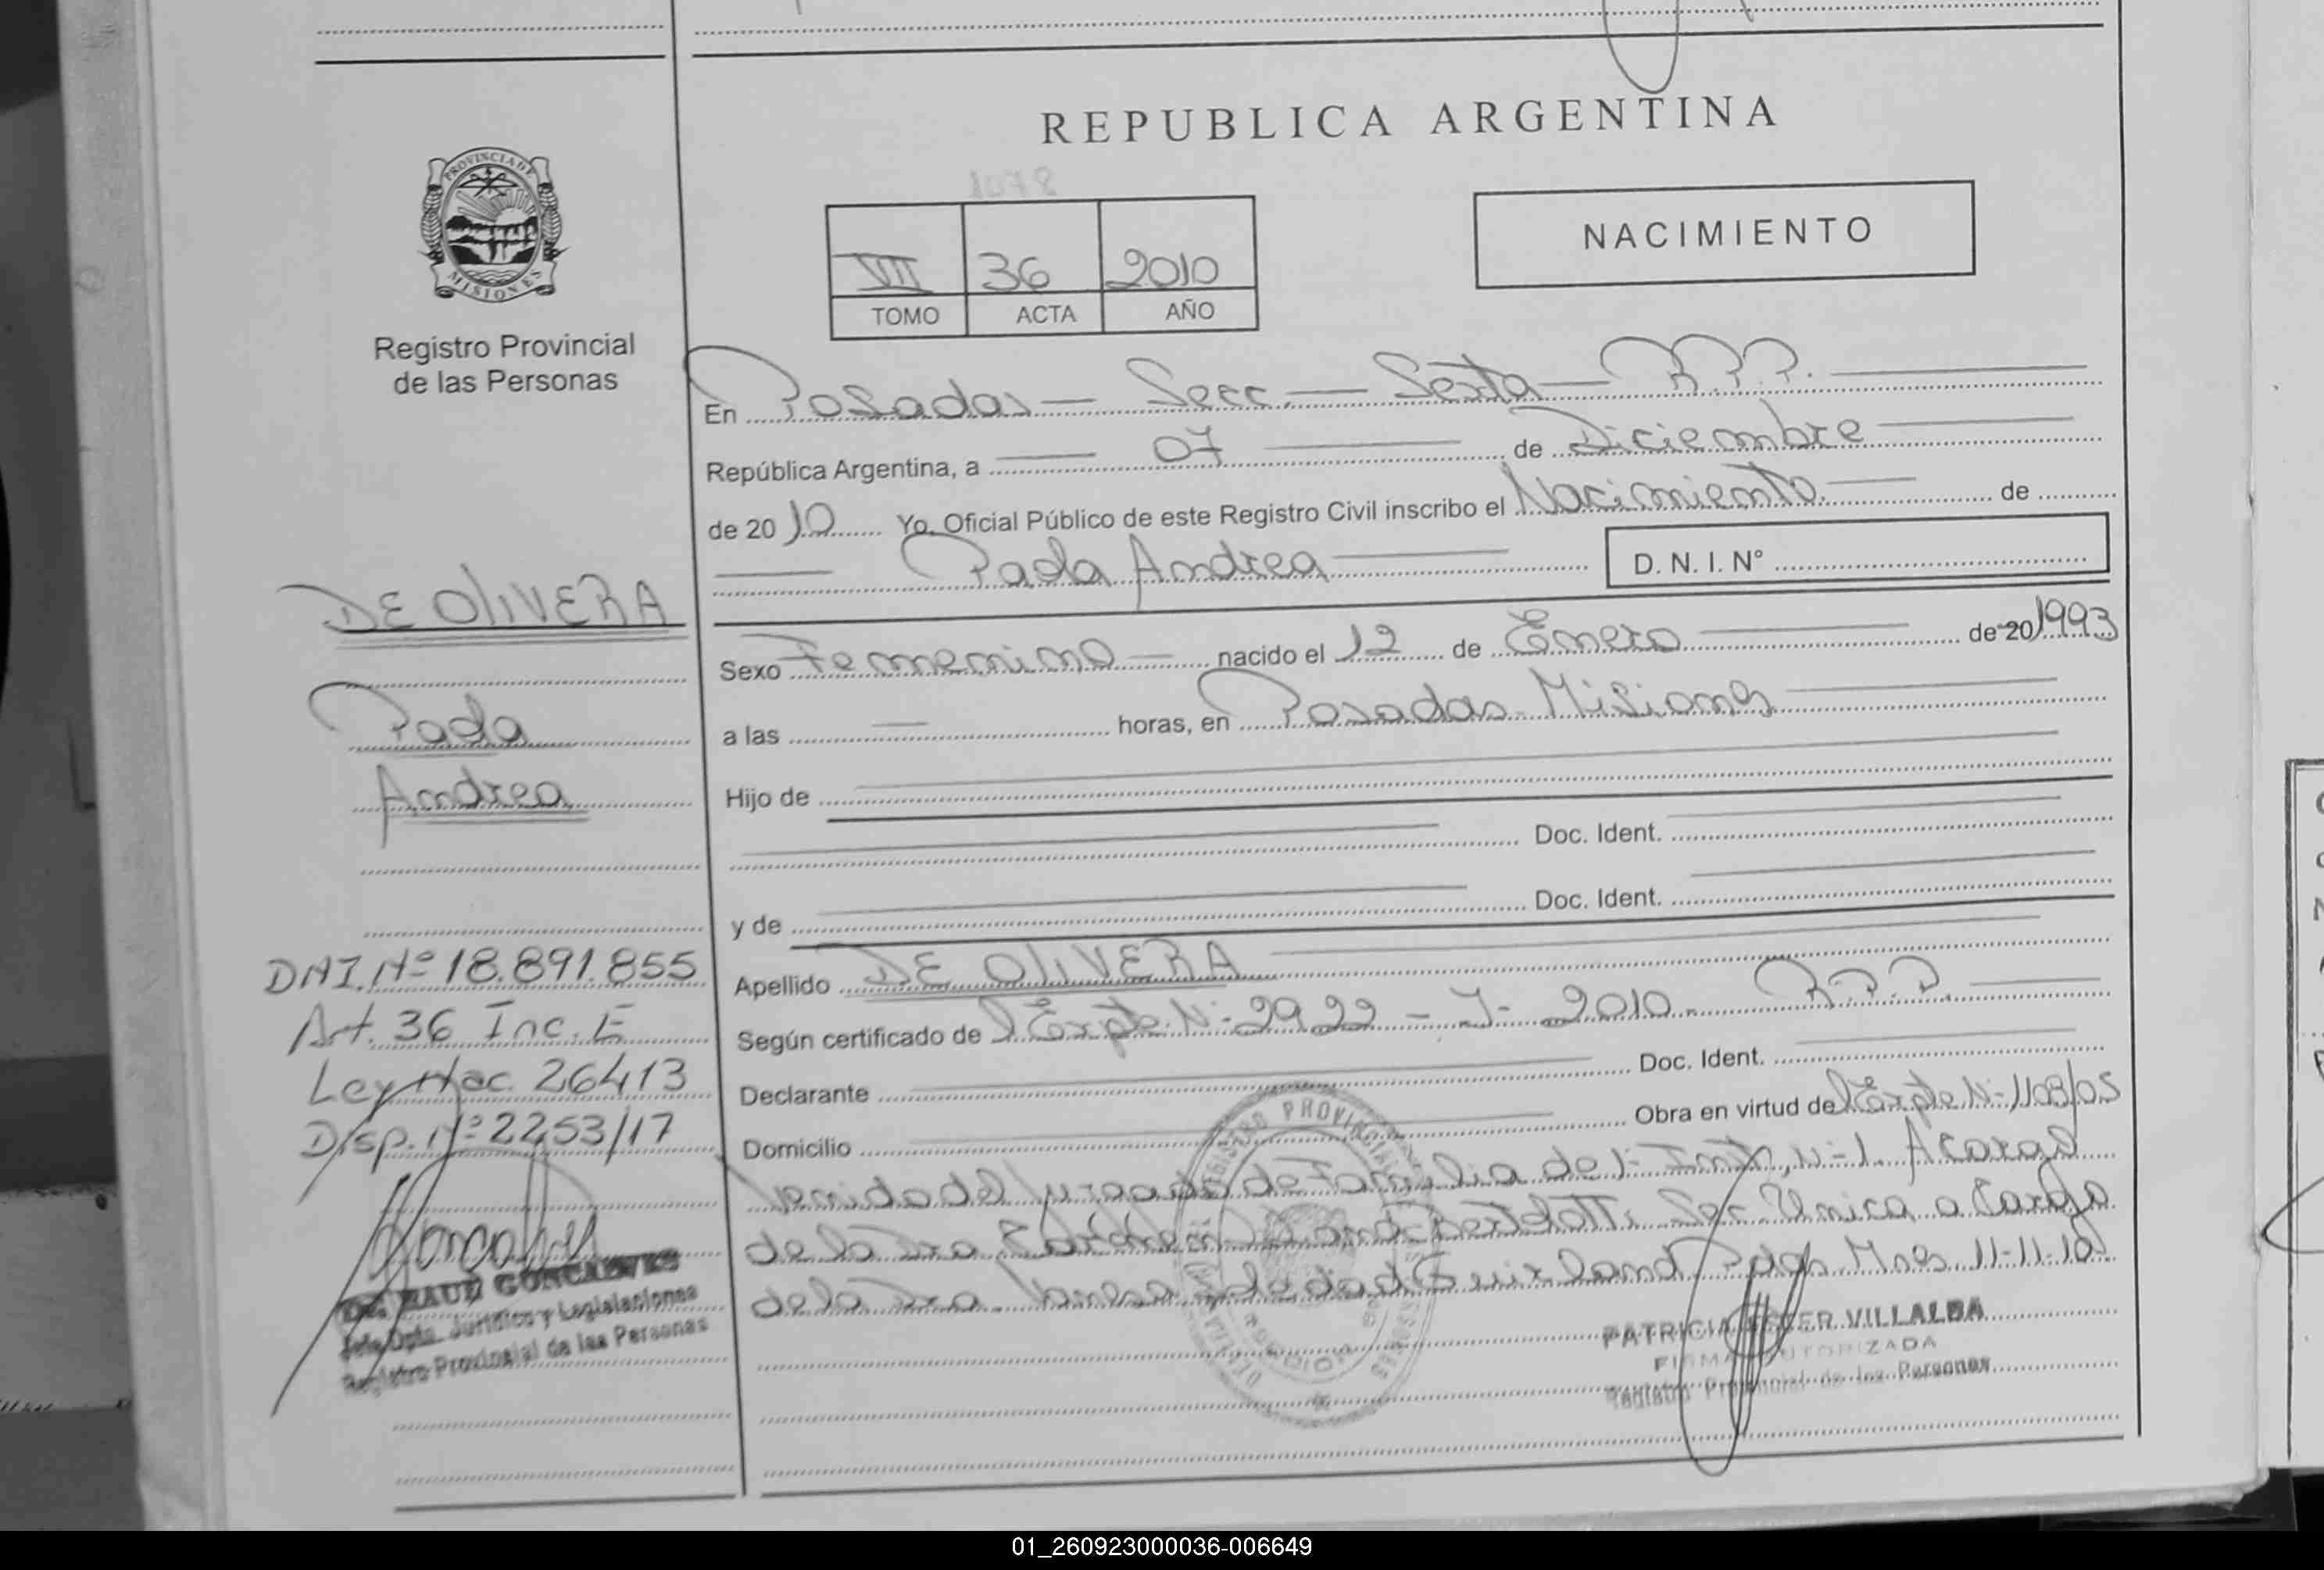 REPUBLICA ARGENTINA
PROVINCIA DE
MISIONES
Registro Provincial
de las Personas
1078
VII 36 2010
TOMO ACTA AÑO
NACIMIENTO
En Posadas - Secc. - Sexta - R.P.P.
República Argentina, a 07 de Diciembre
de 20 10 Yo, Oficial Público de este Registro Civil inscribo el Nacimiento de
Paola Andrea D. N. I. N°
DE OLIVERA
Paola
Andrea
Sexo Femenino nacido el 12 de Enero de 20 1993
a las — horas, en Posadas Misiones
Hijo de
Doc. Ident.
y de Doc. Ident.
Apellido DE OLIVERA
Según certificado de l Expte. N: 2922 - J - 2010. R.P.P.
Declarante Doc. Ident.
Domicilio Obra en virtud del Expte N: 1108/05
DNI. Nº 18.891.855
Art. 36 Inc. E
Ley Nac. 26413
Disp. Nº 2253/17
GONCALVES
Jefe Dpto. Jurídico y Legislaciones
Registro Provincial de las Personas
de Familia de 1: Inst. N: 1.
Única a
Pdas Mnes 11-11-10
REGISTRO PROVINCIAL
PATRICIA ESTER VILLALBA
FIRMA AUTORIZADA
Registro Provincial de las Personas
01_260923000036-006649